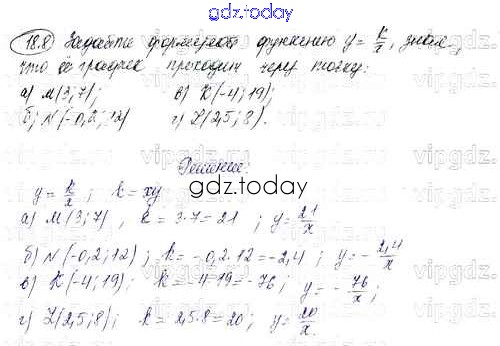 gdz.today
18.8 Задайте формулой функцию y = k/x, зная,
что её график проходит через точку:
а) M(3; 7); в) K(-4; 19);
б) N(-0,2; 12) г) L(2,5; 8).
Решение:
y = k/x ; k = xy
gdz.today
а) M(3; 7), k = 3·7 = 21 ; y = 21/x
б) N(-0,2; 12) ; k = -0,2·12 = -2,4 ; y = -2,4/x
в) K(-4; 19); k = -4·19 = -76 ; y = -76/x ;
г) L(2,5; 8); k = 2,5·8 = 20 ; y = 20/x.
gdz.today
vipgdz